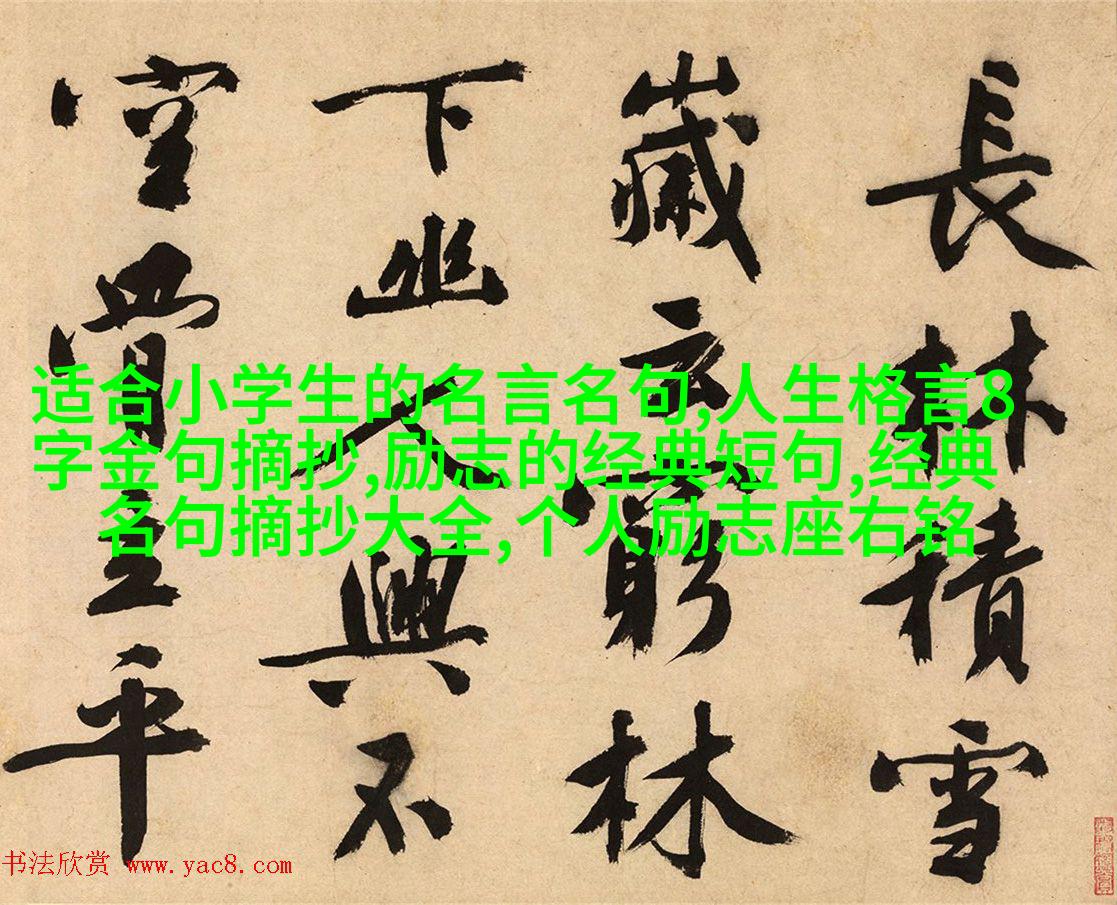 長林積雪
歲云窮林
下幽人興不
空曾平
适合小学生的名言名句,人生格言8
字金句摘抄,励志的经典短句,经典
名句摘抄大全,个人励志座右铭
书法欣赏 www.yac8.com